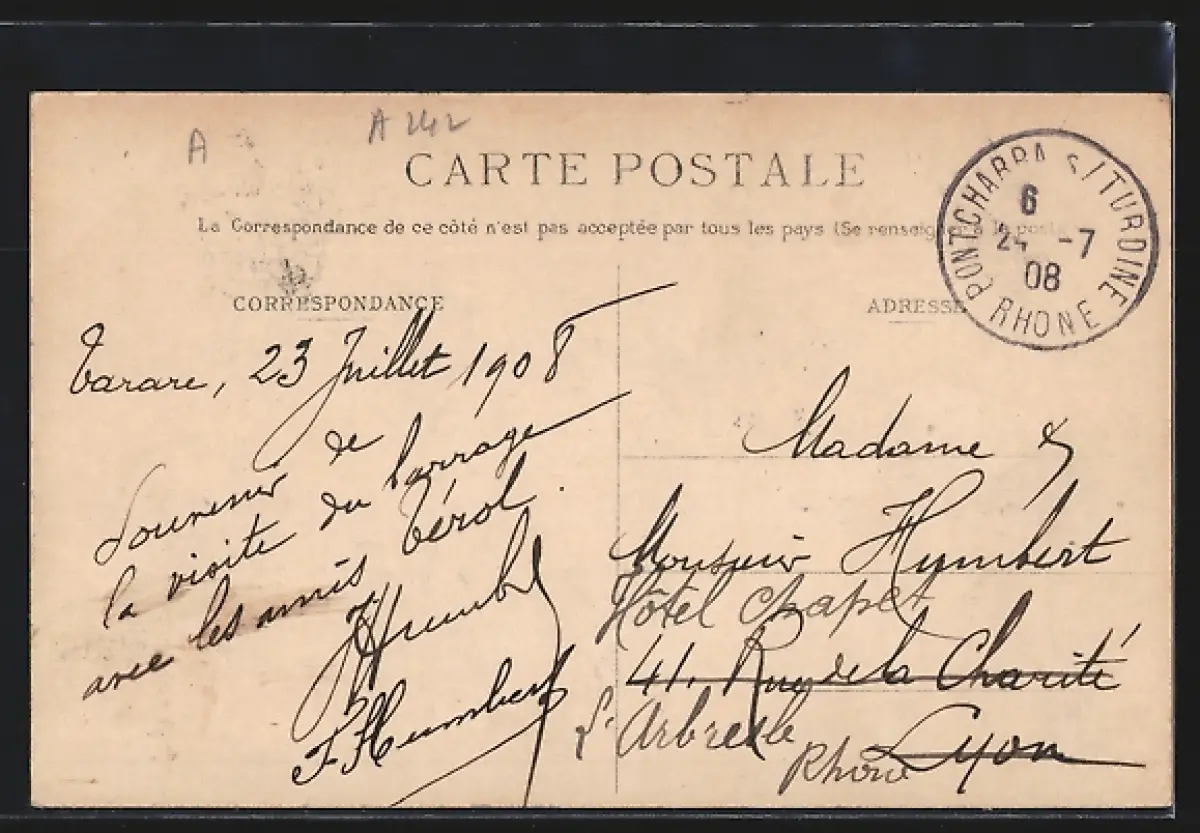 A
A 242
CARTE POSTALE
La Correspondance de ce côté n'est pas acceptée par tous les pays (Se renseigner à la poste
CORRESPONDANCE
ADRESSE
PONTCHARRA S/TURDINE
6
24 -7
08
RHONE
Tarare, 23 Juillet 1908
Souvenir de
la visite du barrage
avec les amis Térol.
Humbert
F. Humbert
Madame &
Monsieur Humbert
Hôtel Chapet
41. Rue de la Charité
Arbresle
Rhône Lyon